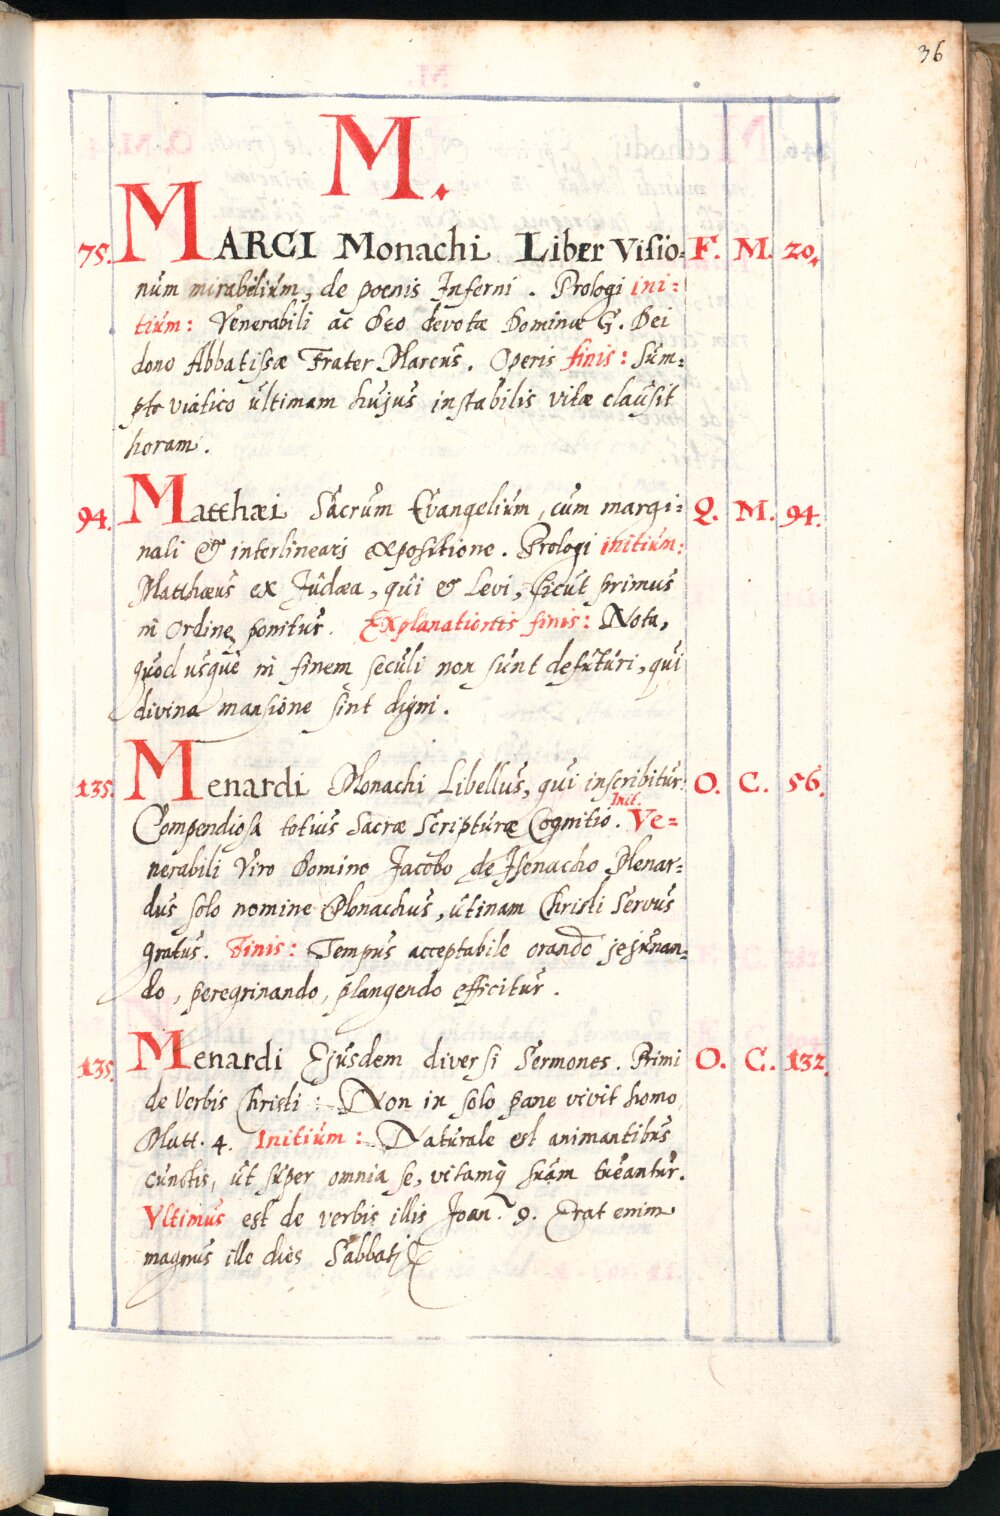 36
M.
75. MARCI Monachi Liber Visio= F. M. 20.
num mirabilium, de poenis Inferni. Prologi ini=
tium: Venerabili ac Deo devotæ Dominæ G. Dei
dono Abbatissæ Frater Marcus. Operis finis: Sum=
pto viatico ultimam hujus instabilis vitæ clausit
horam.
94. Matthæi Sacrum Evangelium, cum margi= Q. M. 94.
nali & interlineari expositione. Prologi initium:
Matthæus ex Judæa, qui & Levi, sicut primus
in ordine ponitur. Explanationis finis: Nota,
quod usque in finem seculi non sunt defuturi, qui
divina mansione sint digni.
135. Menardi Monachi Libellus, qui inscribitur O. C. 56.
Compendiosa totius Sacræ Scripturæ Cognitio. Init. Ve=
nerabili Viro Domino Jacobo de Isenacho Menar=
dus solo nomine Monachus, utinam Christi Servus
gratus. Finis: Tempus acceptabile orando jejunan=
do, peregrinando, plangendo efficitur.
135. Menardi Ejusdem diversi Sermones. Primi O. C. 132.
de Verbis Christi: Non in solo pane vivit homo
Matt. 4. Initium: Naturale est animantibus
cunctis, ut super omnia se, vitamq suam tueantur.
Vltimus est de verbis illis Joan. 9. Erat enim
magnus ille dies Sabbati